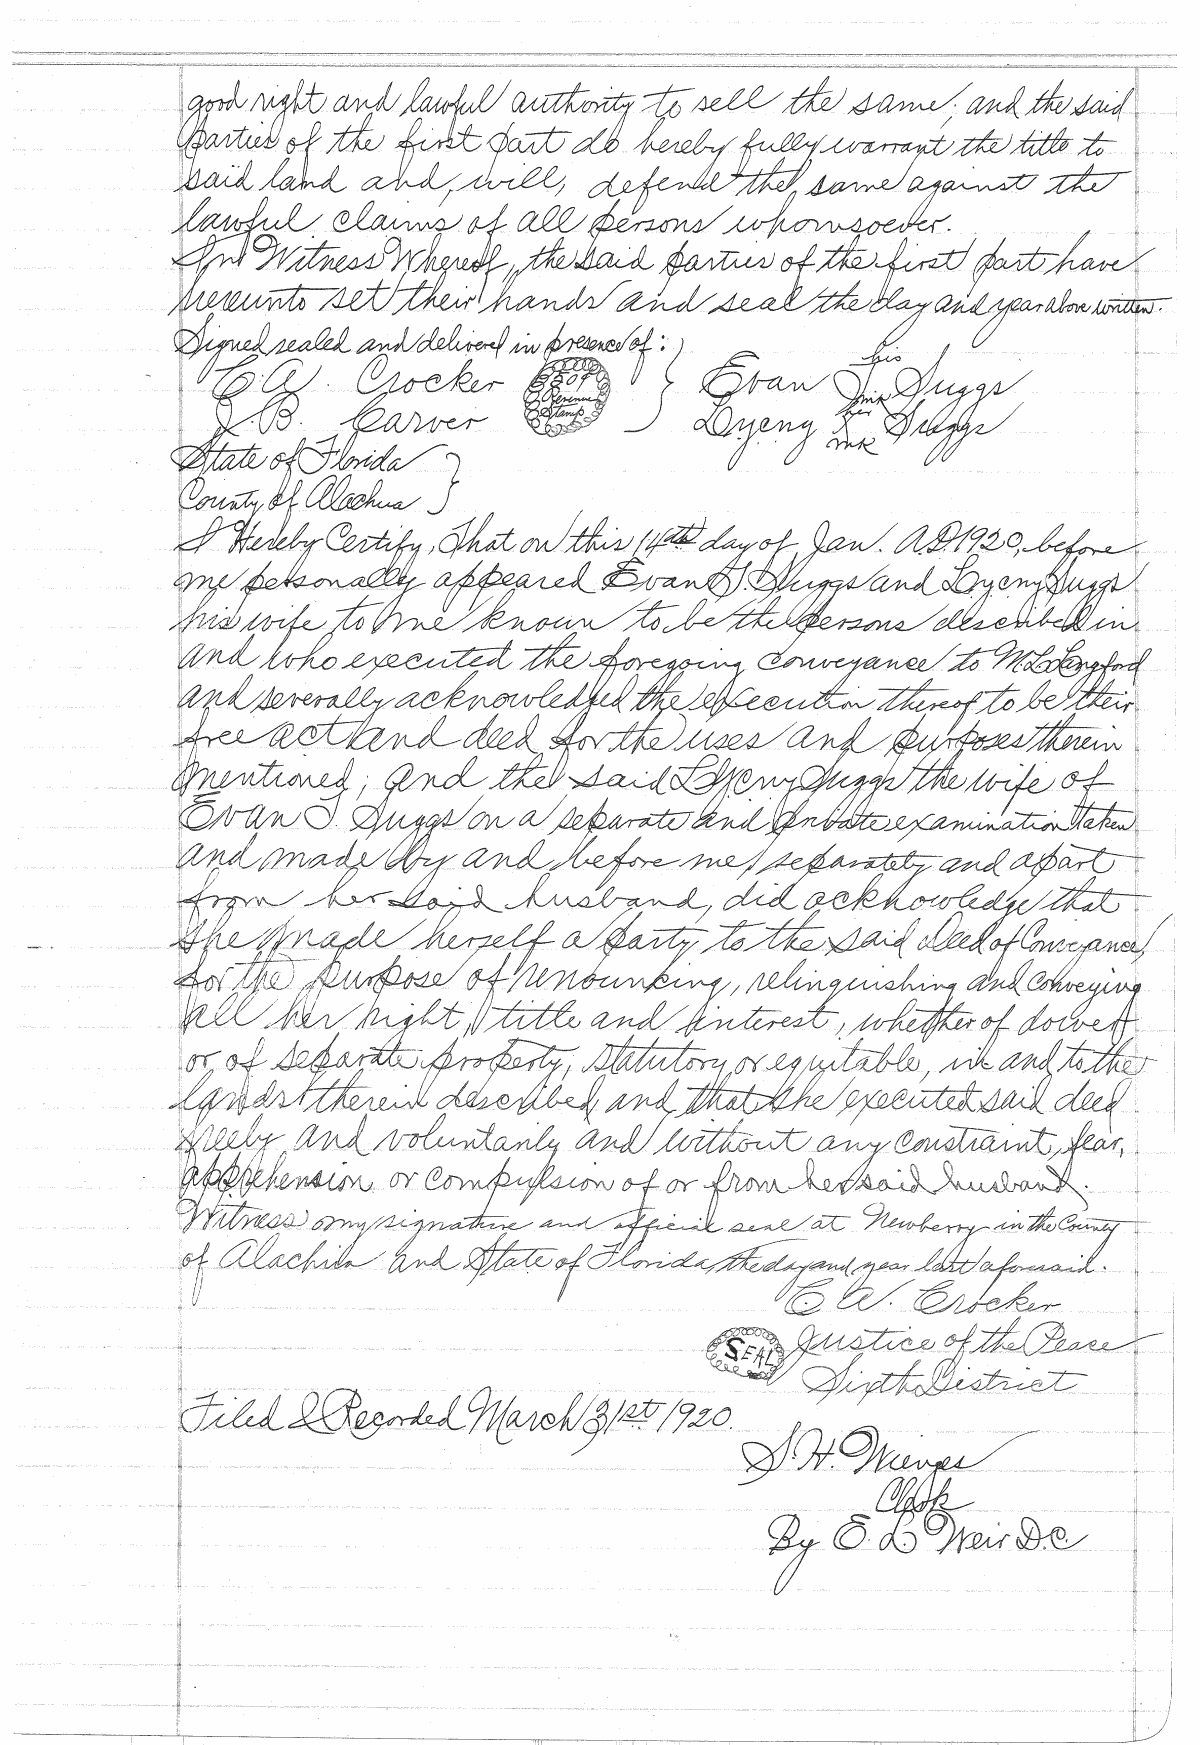 good right and lawful authority to sell the same; and the said
parties of the first part do hereby fully warrant the title to
said land and, will, defend the same against the
lawful claims of all persons whomsoever.
In Witness Whereof, the said parties of the first part have
hereunto set their hands and seal the day and year above written.
Signed sealed and delivered in presence of:
his
C. W. Crocker Evan Suggs
mk
her
J. B. Carver Lyeny X Suggs
mk
Revenue
Stamp
State of Florida
County of Alachua
I Hereby Certify, That on this 14th day of Jan. A.D. 1920, before
me personally appeared Evan T. Suggs and Lyeny Suggs
his wife to me known to be the persons described in
and who executed the foregoing conveyance to M. L. Langford
and severally acknowledged the execution thereof to be their
free act and deed for the uses and purposes therein
mentioned; and the said Lyeny Suggs the wife of
Evan T. Suggs on a separate and private examination taken
and made by and before me, separately and apart
from her said husband, did acknowledge that
she made herself a party to the said deed of Conveyance,
for the purpose of renouncing, relinquishing and conveying
all her right, title and interest, whether of dower
or of separate property, statutory or equitable, in and to the
lands therein described, and that she executed said deed
freely and voluntarily and without any constraint, fear,
apprehension or compulsion of or from her said husband.
Witness my signature and official seal at Newberry in the County
of Alachua and State of Florida, the day and year last aforesaid.
C. W. Crocker
SEAL Justice of the Peace
Sixth District
Filed & Recorded March 31st 1920.
S. H. Wienges
Clerk
By E. L. Weir D.C.